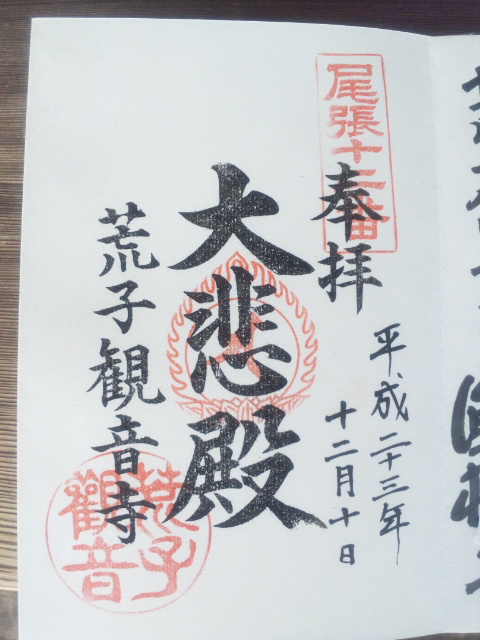 尾張十二番
奉拝
平成二十三年
十二月十日
大悲殿
荒子観音寺
荒子
觀音